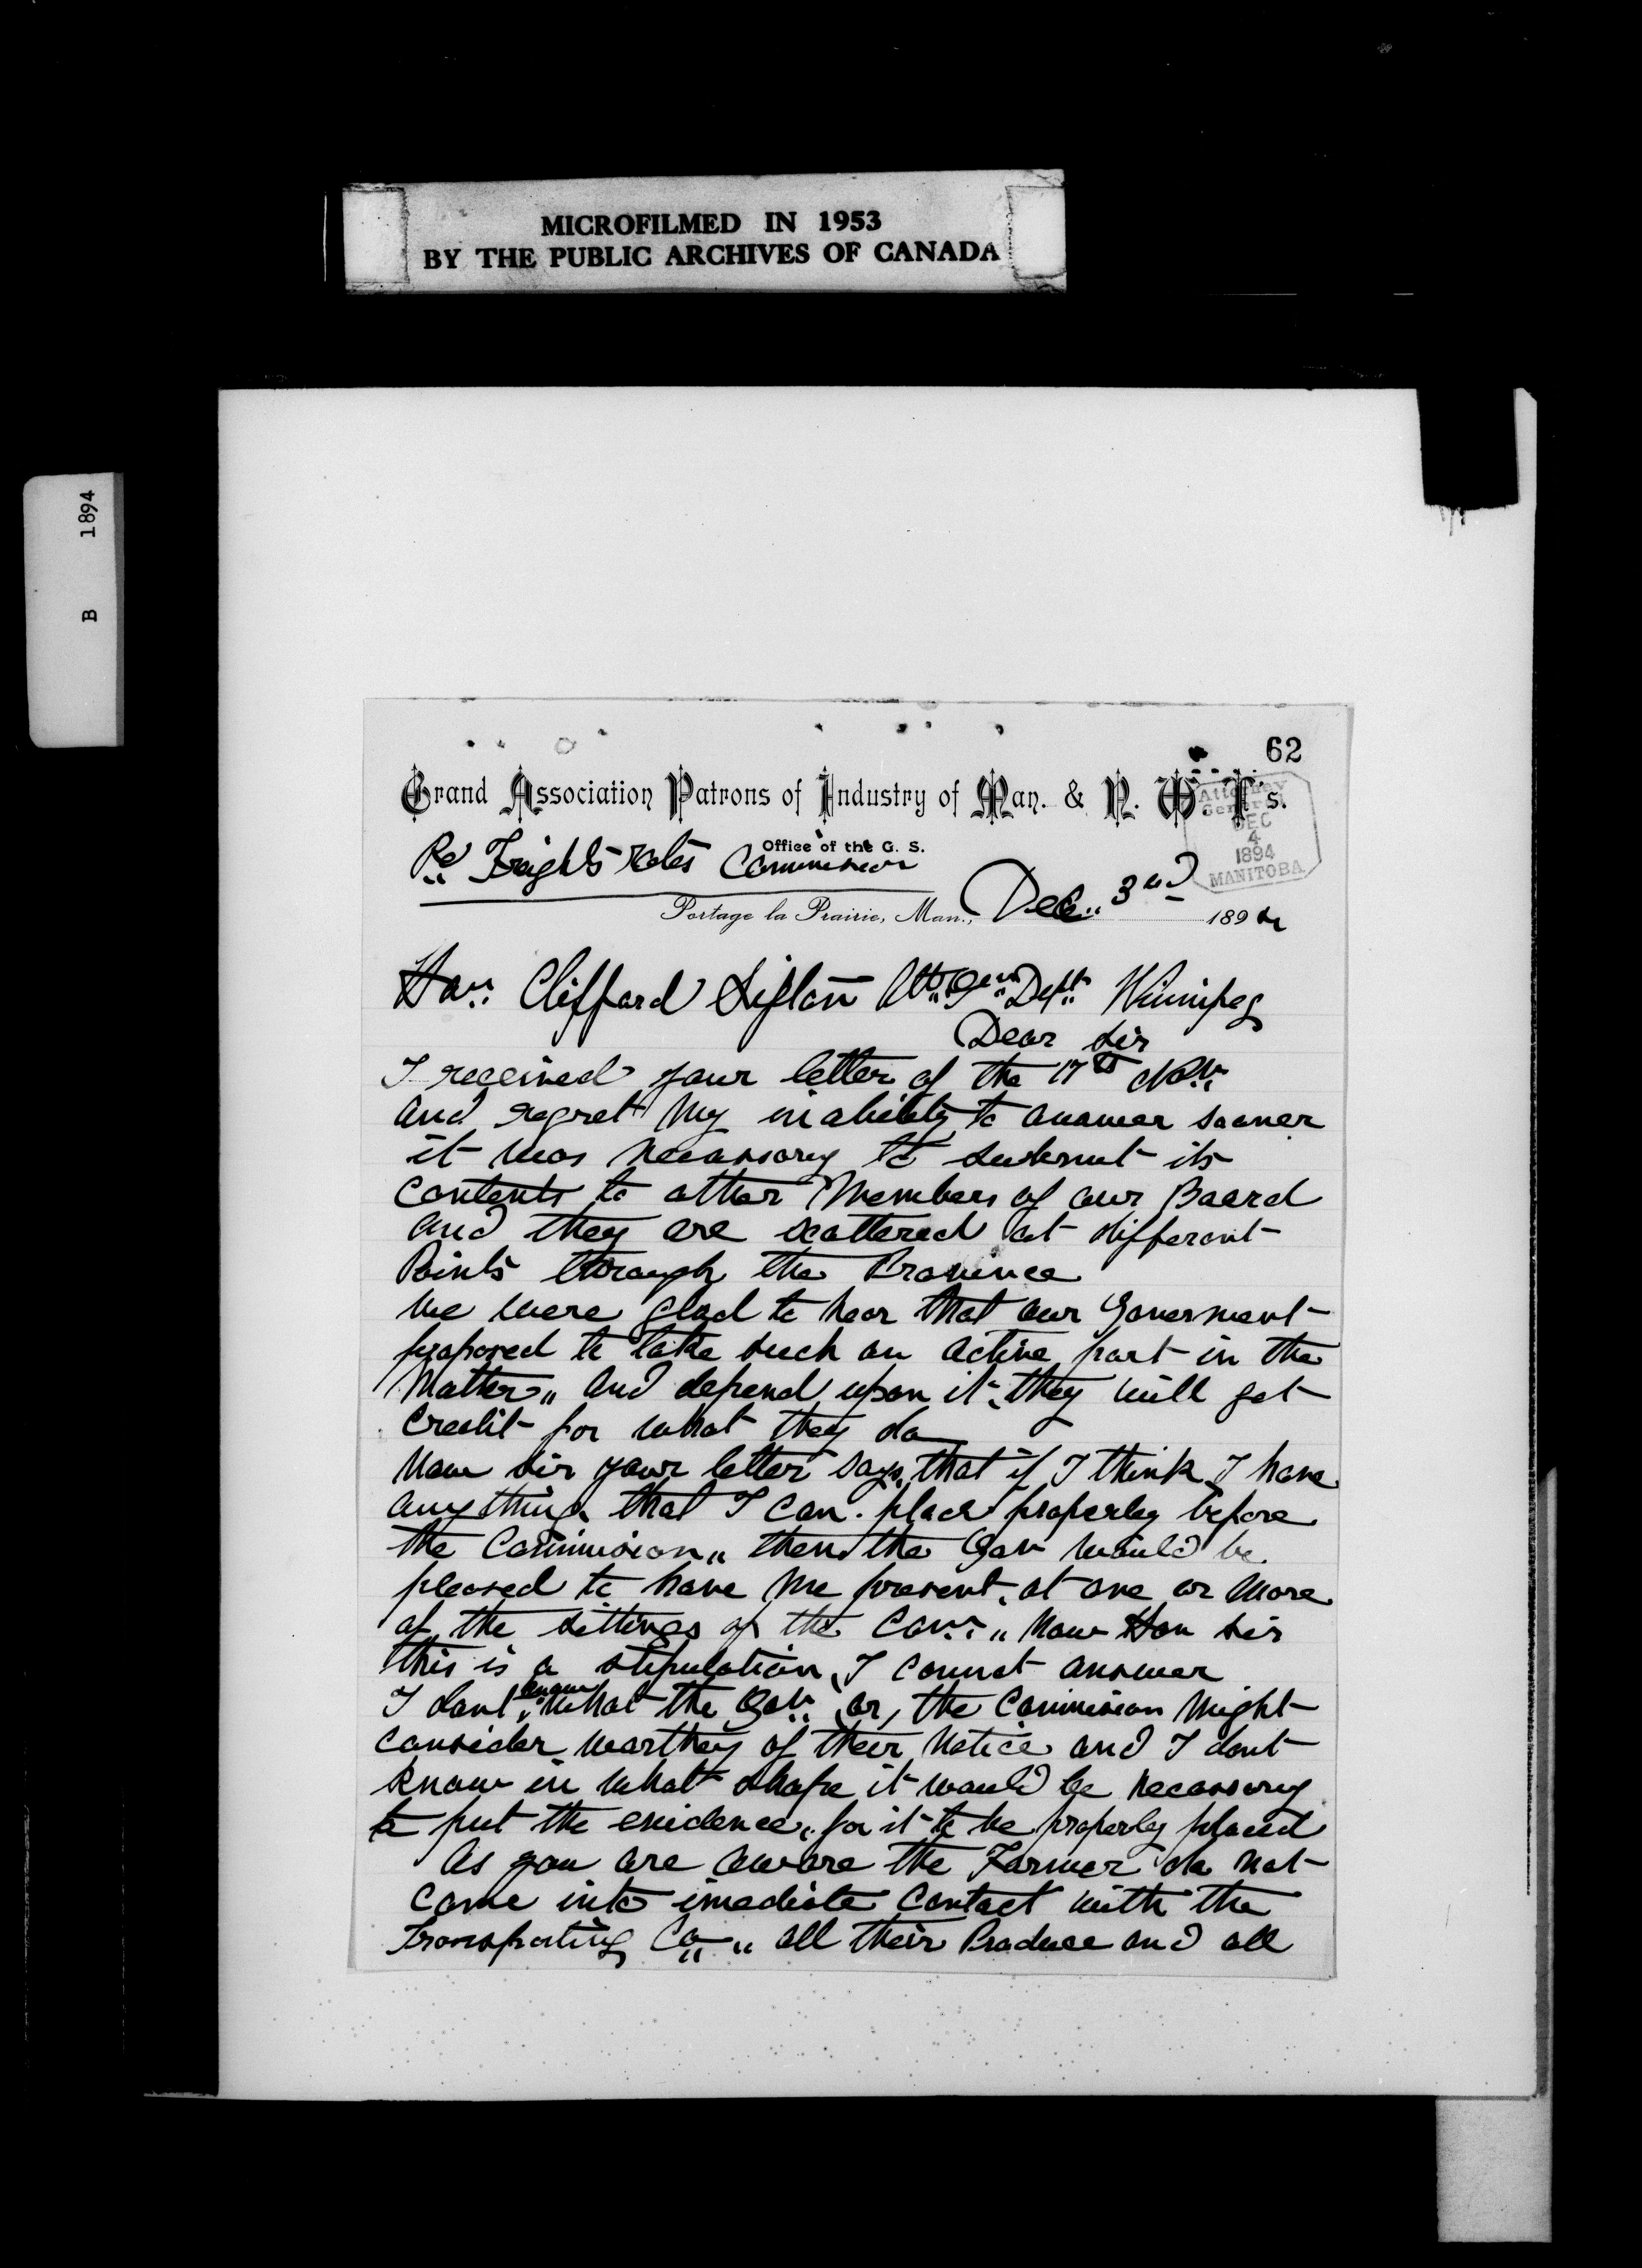 MICROFILMED IN 1953
BY THE PUBLIC ARCHIVES OF CANADA
B 1894
62
Grand Association Patrons of Industry of Man. & N. W. T's.
Attorney
General
DEC
4
1894
MANITOBA
Office of the G. S.
Re Freights rates Commission
Portage la Prairie, Man., Dec. 3rd 1894
Hon. Cliffard Sifton Att. Gen. Dept. Winnipeg
Dear Sir
I received your letter of the 17th Nov.
and regret my inability to answer sooner
it was necessary to submit its
contents to other Members of our Board
and they are scattered at different
Points through the Province
We were glad to hear that our Goverment
proposed to take such an active part in the
Matter,, and depend upon it, they will get
credit for what they do
Now sir your letter says, that if I think I have
any thing that I can place properly before
the Commision,, then the Gov would be
pleased to have me present, at one or more
of the sittings of the Com.,, Now Hon sir
this is a stipulation, I cannot answer
I dont know what the Gov. or, the Commision might
consider worthy of their notice and I dont
know in what shape it would be necessary
to put the evidence, for it to be properly placed
As you are aware the Farmer do not
come into imediate contact with the
Transporting Co,, all their Produce and all